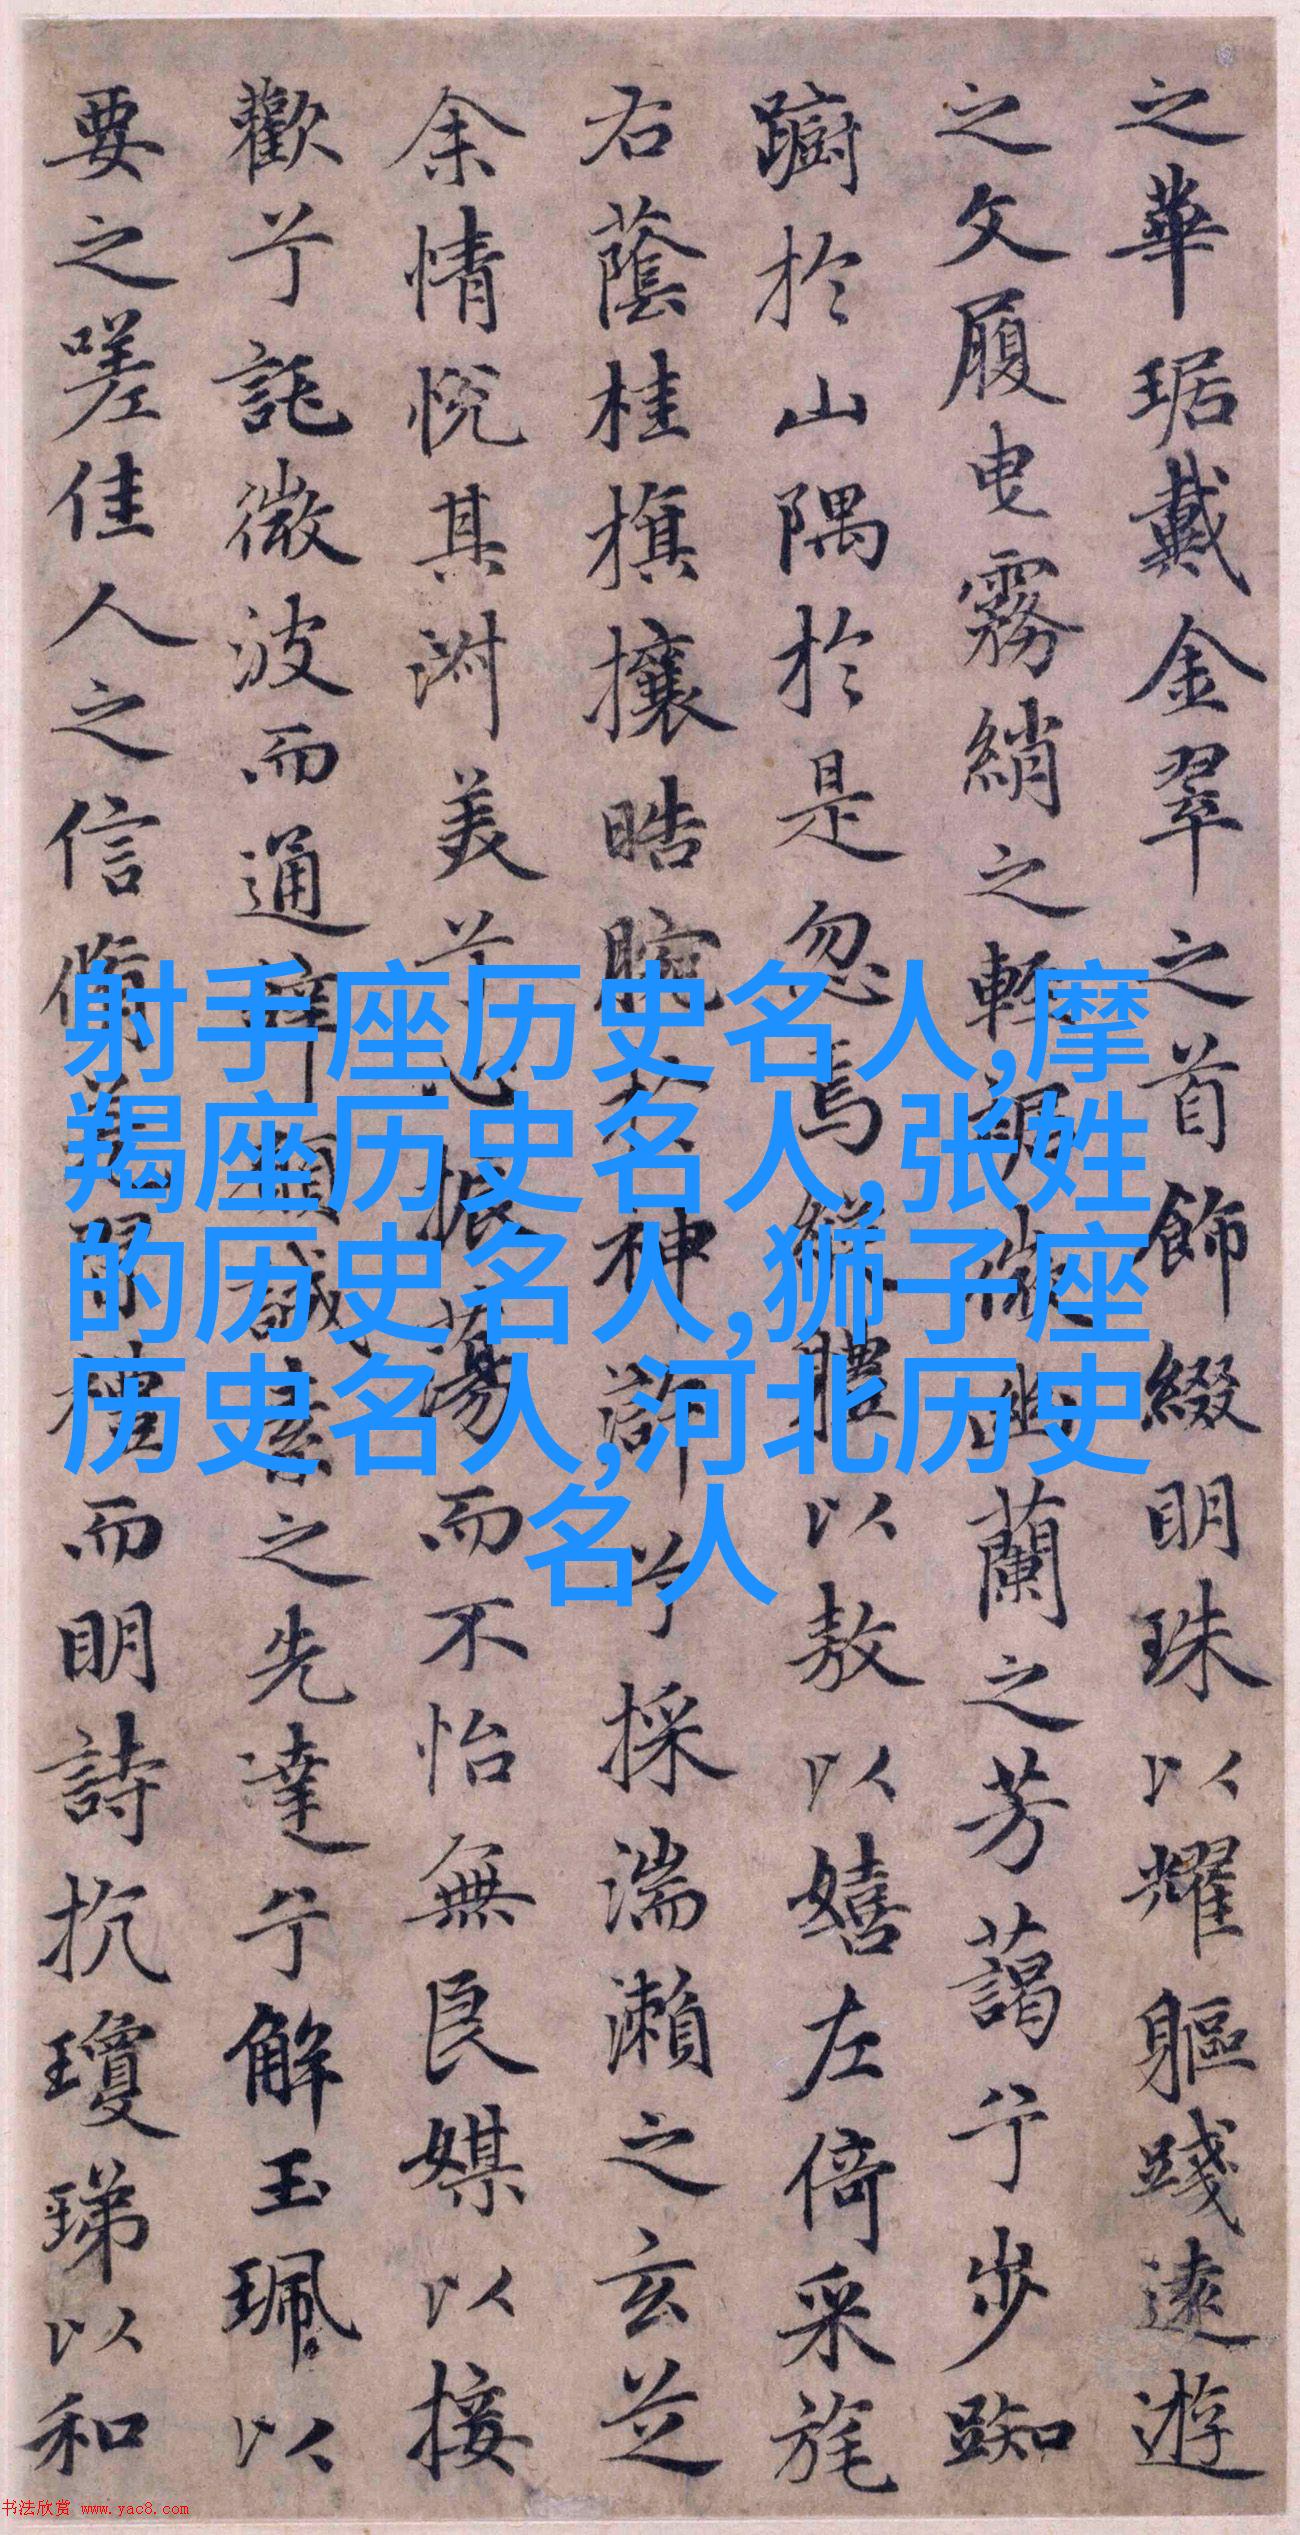 之華琚戴金翠之首飾綴明珠以耀軀踐遠遊
之文履曳霧綃之輕裾微幽蘭之芳藹兮步踟
躕於山隅於是忽焉縱體以敖以嬉左倚采旄
右蔭桂旗攘晧腕於神滸兮採湍瀨之玄芝
余情悅其淑美兮心振蕩而不怡無良媒以接
歡兮託微波而通辭願誠素之先達兮解玉珮以
要之嗟佳人之信脩羌習禮而明詩抗瓊珶以和
射手座历史名人,摩
羯座历史名人,张姓
的历史名人,狮子座
历史名人,河北历史
名人
书法欣赏 www.yac8.com